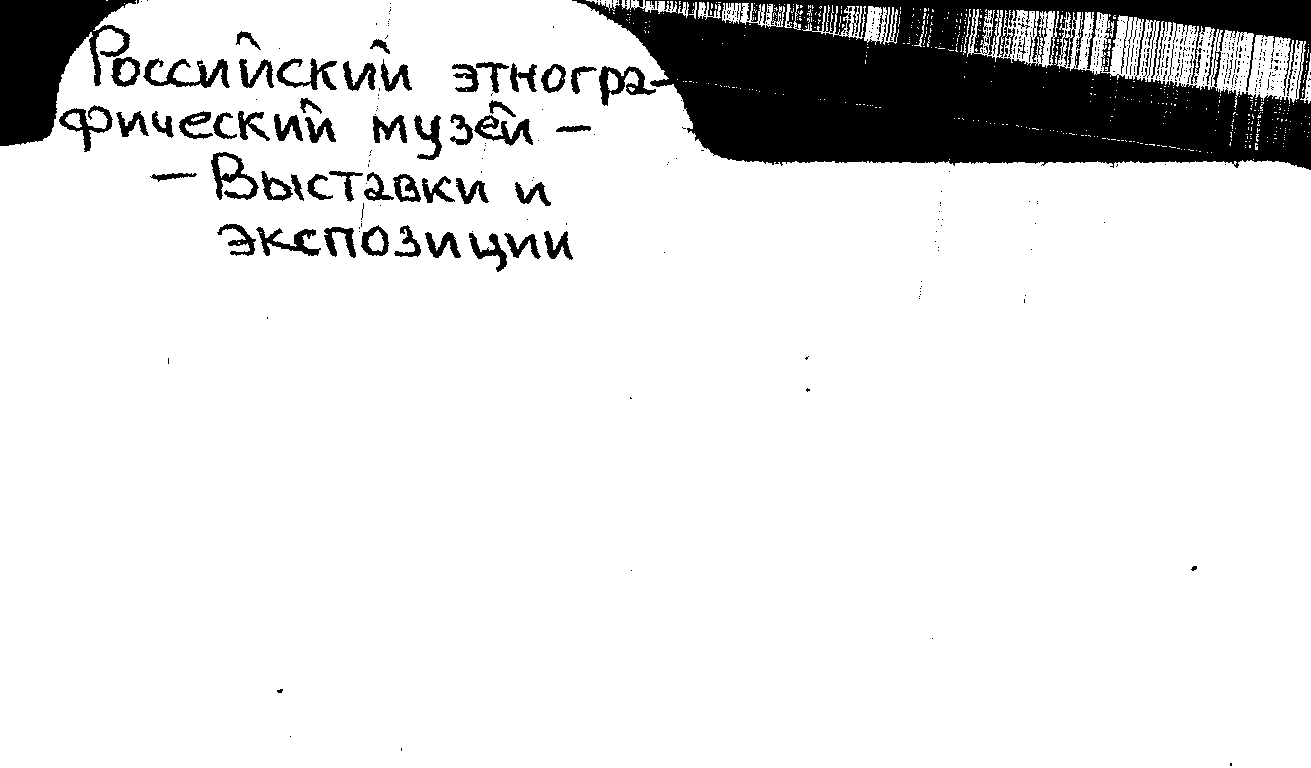 Российский этногра-
фический музей -
- Выставки и
экспозиции